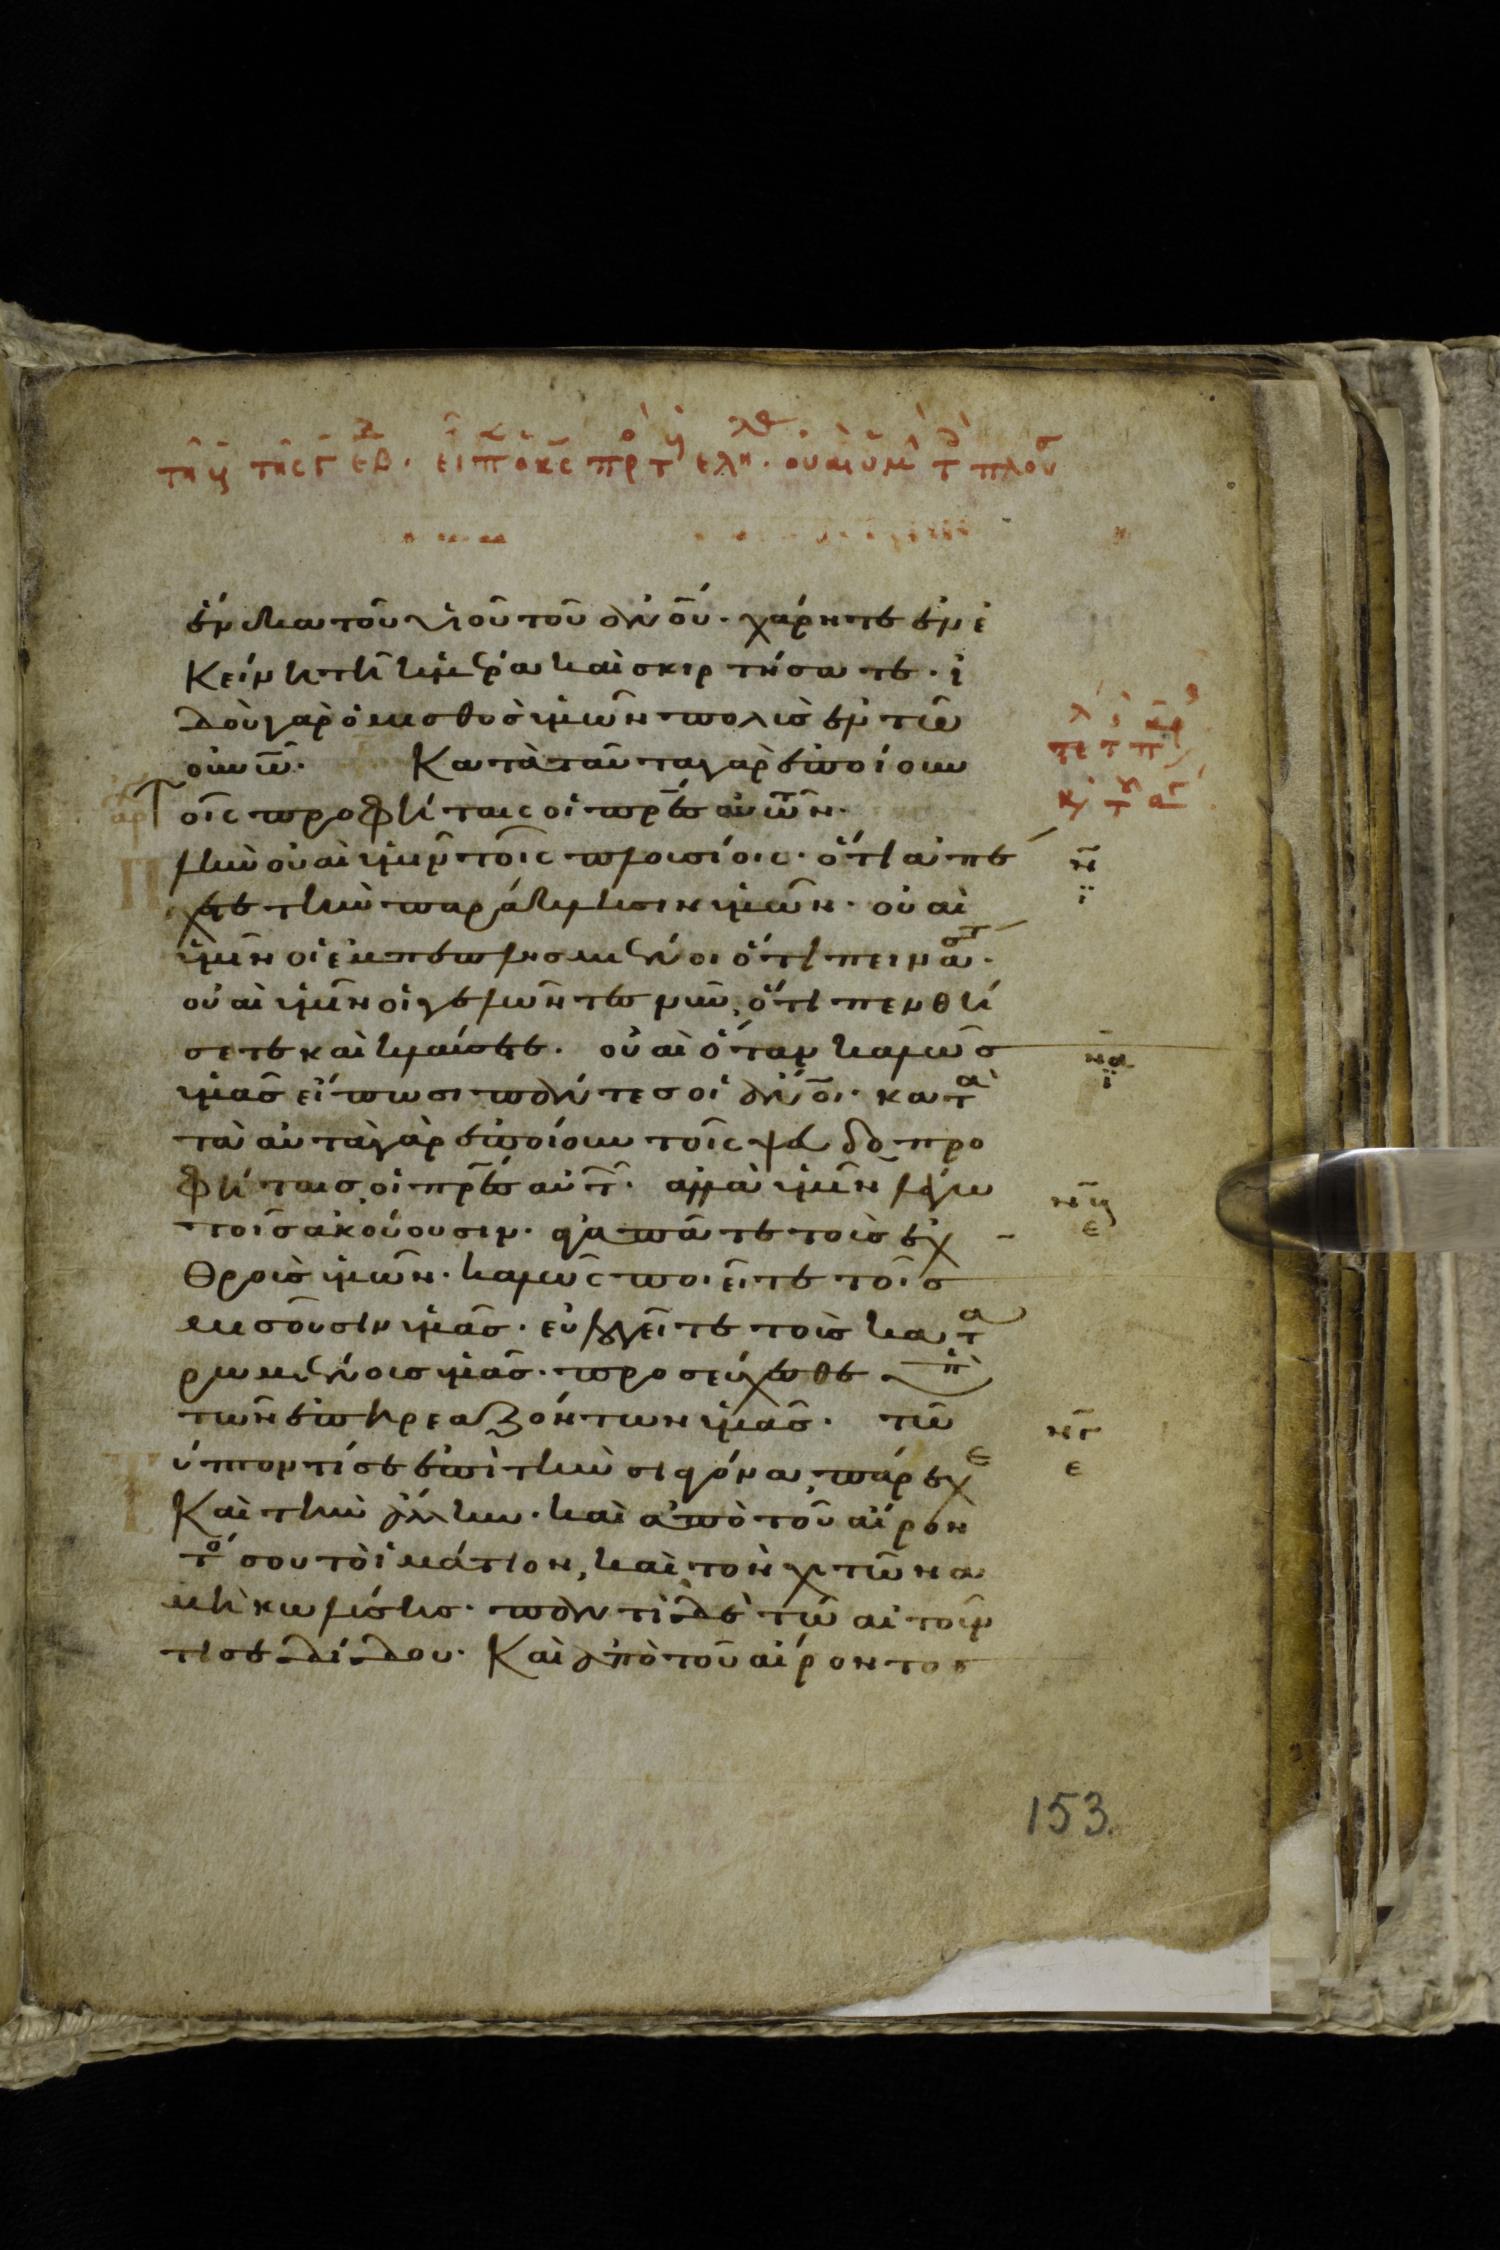 ἕνεκα τοῦ υἱοῦ τοῦ ἀνοῦ· χάρητε ἐν ἐ
κείνη τῆ ἡμέρα καὶ σκιρτήσατε· ἰ
δοὺ γὰρ ὁ μισθὸσ ὑμῶν πολὺσ ἐν τῶ
οὐνω· Κατὰ ταῦτα γὰρ ἐποίουν
τοῖς προφήταις οἱ πρεσ αὐτῶν·
πλὴν οὐαὶ ὑμῖν τοῖς πλουσίοις· ὅτι ἀπέ
χετε τὴν παράκλησιν ὑμῶν· οὐαὶ
ὑμῖν οἱ ἐμπεπλησμένοι ὅτι πεινάστ·
οὐαὶ ὑμῖν οἱ γελῶντεσ νῦν, ὅτι πενθή
σετε καὶ κλαύσετε· οὐαὶ ὅταν καλῶσ
ὑμᾶσ εἴπωσι πάντεσ οἱ ἀνοι· κατὰ
τὰ αὐτὰ γὰρ ἐποίουν τοῖς ψευδοπρο
φήταισ οἱ πρεσ αὐτ· ἀλλὰ ὑμῖν λέγω
τοῖσ ἀκούουσιν· ἀγαπᾶτε τοὺσ ἐχ
θροὺσ ὑμῶν· καλῶς ποιεῖτε τοῖσ
μισοῦσιν ὑμᾶσ· εὐλογεῖτε τοὺσ κατα
ρωμένουσ ὑμᾶσ· προσεύχεσθε ὑπὲ
τῶν ἐπηρεαζόντων ὑμᾶσ· τῶ
τύπτοντί σε ἐπὶ τὴν σιαγόνα, πάρεχε
Καὶ τὴν ἄλλην· καὶ ἀπὸ τοῦ αἴρον
το σου τὸ ἱμάτιον, καὶ τὸν χιτῶνα
μὴ κωλύσησ· παντὶ δὲ τῶ αἰτοῦν
τί σε δίδου· Καὶ ἀπὸ τοῦ αἴροντοσ
153